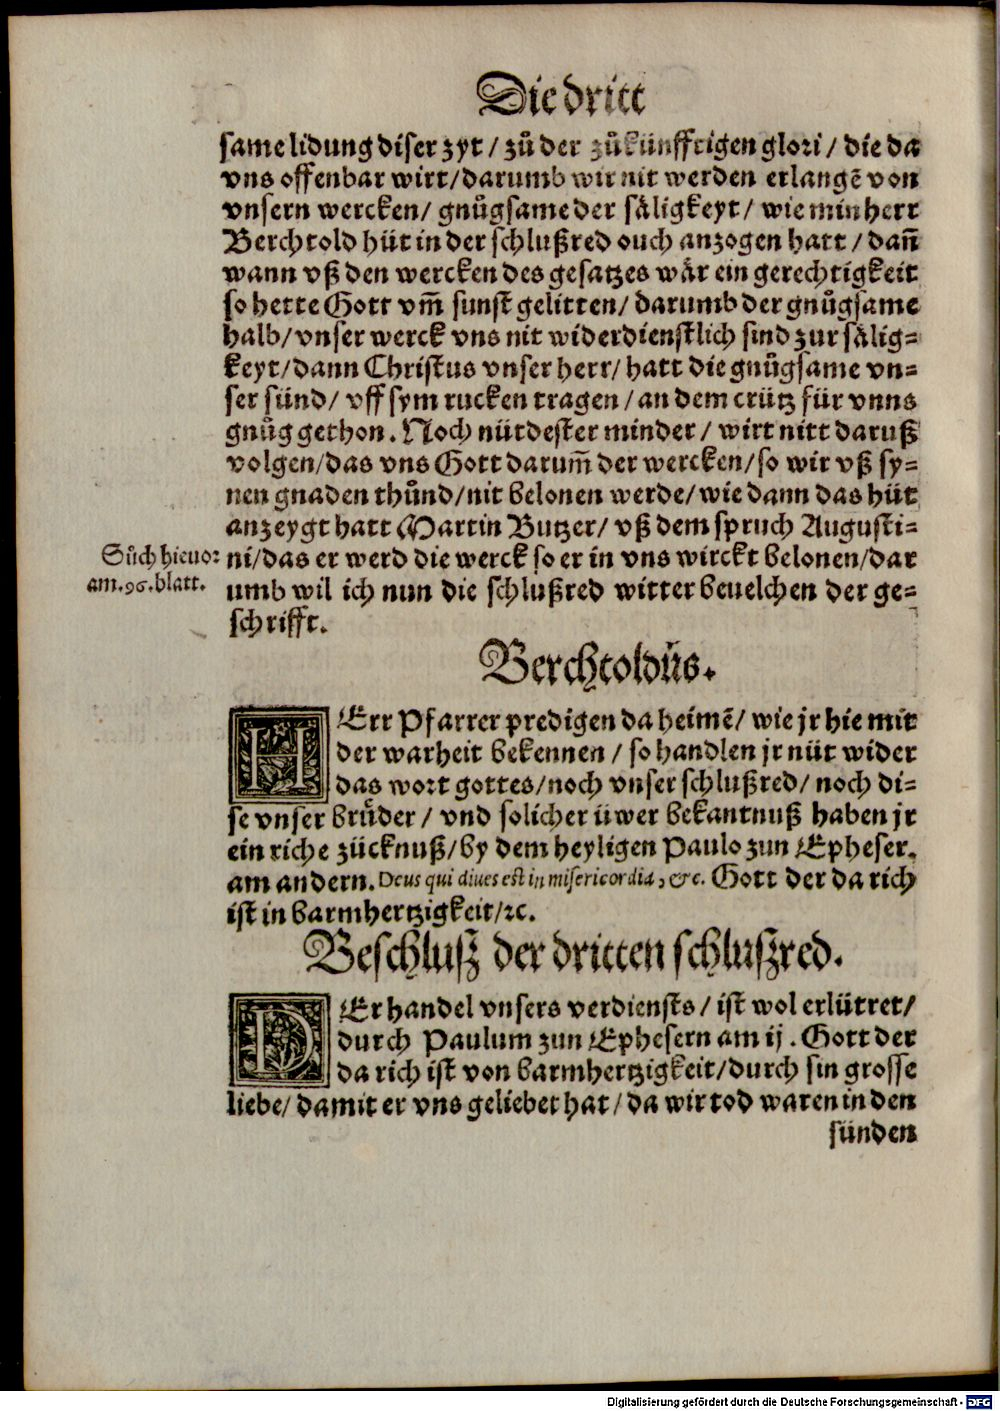 Die dritt
same lidung diser zyt / zů der zůkünfftigen glori / die da
vns offenbar wirt / darumb wir nit werden erlangē von
vnsern wercken / gnůgsame der säligkeyt / wie min herr
Berchtold hüt in der schlußred ouch anzogen hatt / dañ
wann vß den wercken des gesatzes wår ein gerechtigkeit
so hette Gott vm̄ sunst gelitten / darumb der gnůgsame
halb / vnser werck vns nit widerdienstlich sind zur sålig-
keyt / dann Christus vnser herr / hatt die gnůgsame vn-
ser sünd / vff sym rucken tragen / an dem crütz für vnns
gnůg gethon. Noch nütdester minder / wirt nitt daruß
volgen / das vns Gott darum̄ der wercken / so wir vß sy-
nen gnaden thůnd / nit belonen werde / wie dann das hüt
anzeygt hatt Martin Butzer / vß dem spruch Augusti-
Sůch hieuor
am .96. blatt.
ni / das er werd die werck so er in vns wirckt belonen / dar
umb wil ich nun die schlußred witter beuelchen der ge-
schrifft.
Berchtoldůs.
HErr Pfarrer predigen da heimē / wie jr hie mit
der warheit bekennen / so handlen jr nüt wider
das wort gottes / noch vnser schlußred / noch di-
se vnser brůder / vnd solicher üwer bekantnuß haben jr
ein riche zücknuß / by dem heyligen Paulo zun Epheser.
am andern. Deus qui diues est in misericordia, &c. Gott der da rich
ist in barmhertzigkeit / ꝛc.
Beschlusz der dritten schluszred.
DEr handel vnsers verdiensts / ist wol erlütret /
durch Paulum zun Ephesern am ij. Gott der
da rich ist von barmhertzigkeit / durch sin grosse
liebe / damit er vns geliebet hat / da wir tod waren in den
sünden
Digitalisierung gefördert durch die Deutsche Forschungsgemeinschaft - DFG